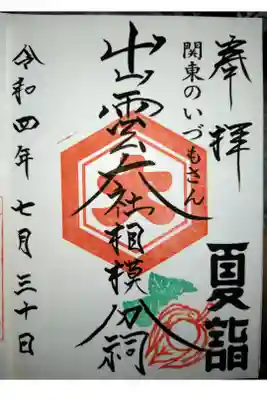 奉拝
夏詣
関東のいづもさん
出雲大社相模分祠
令和四年七月三十日